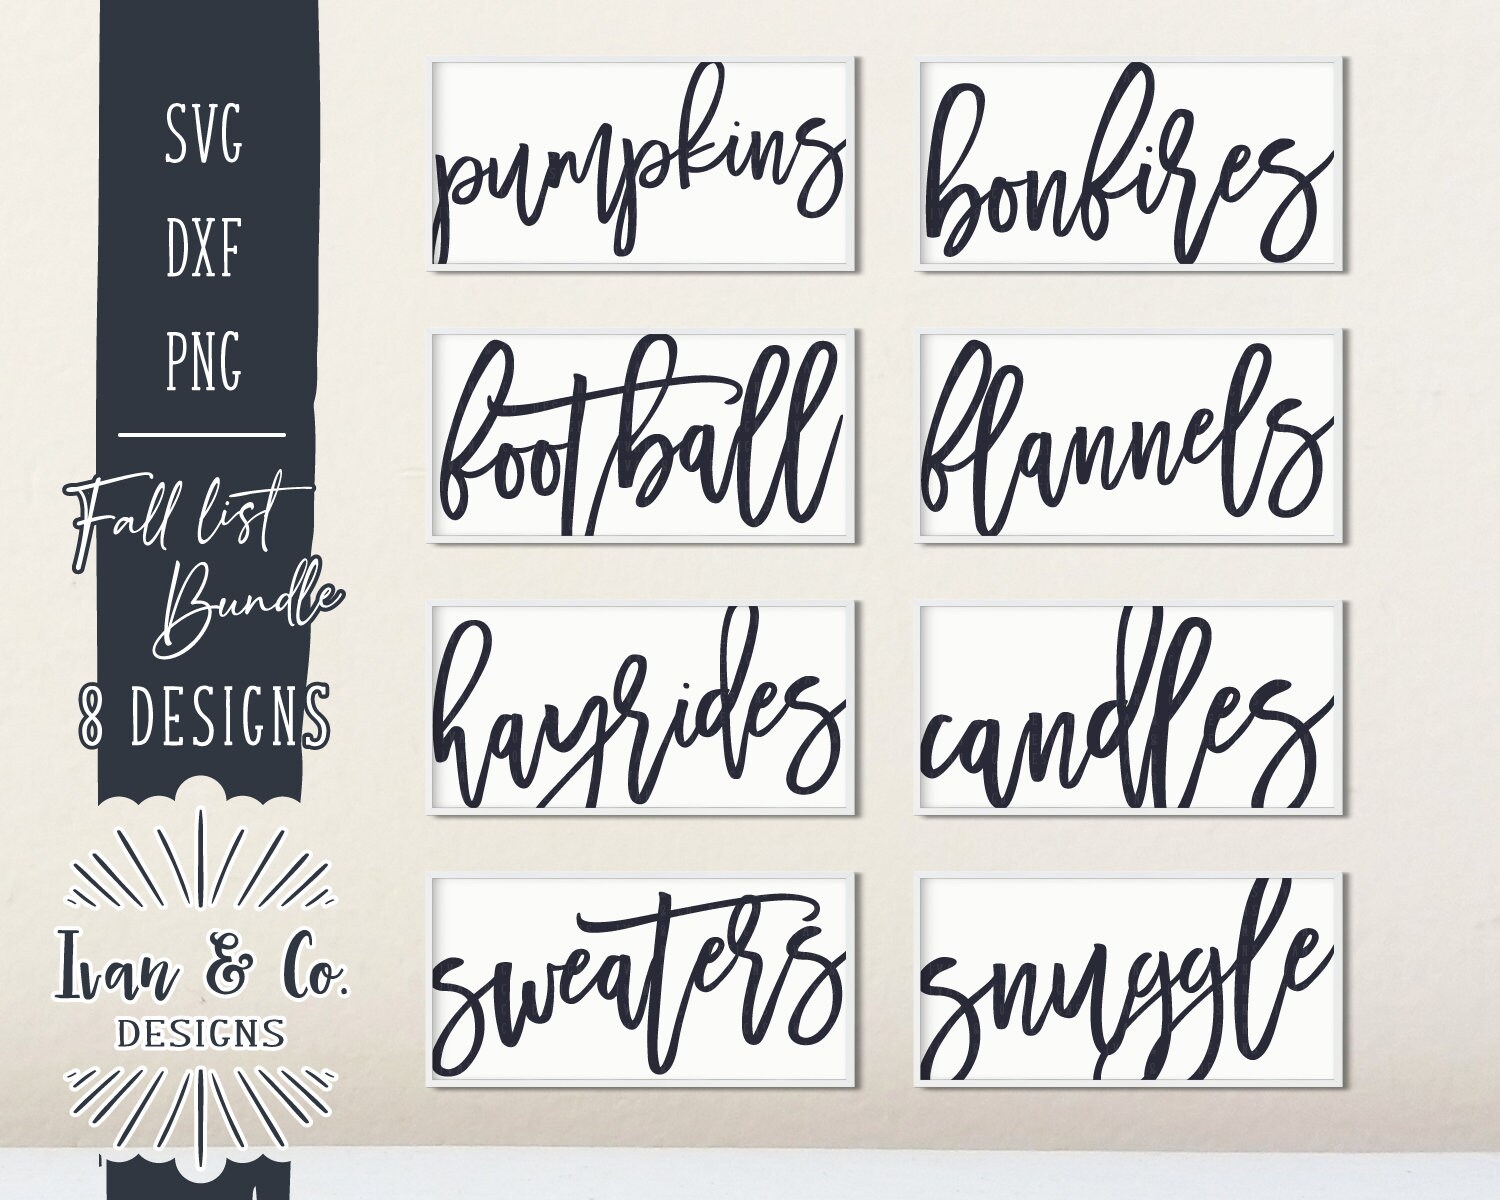 SVG
DXF
PNG
Fall list
Bundle
8 DESIGNS
Ivan & Co.
DESIGNS
pumpkins
bonfires
football
flannels
hayrides
candles
sweaters
snuggle